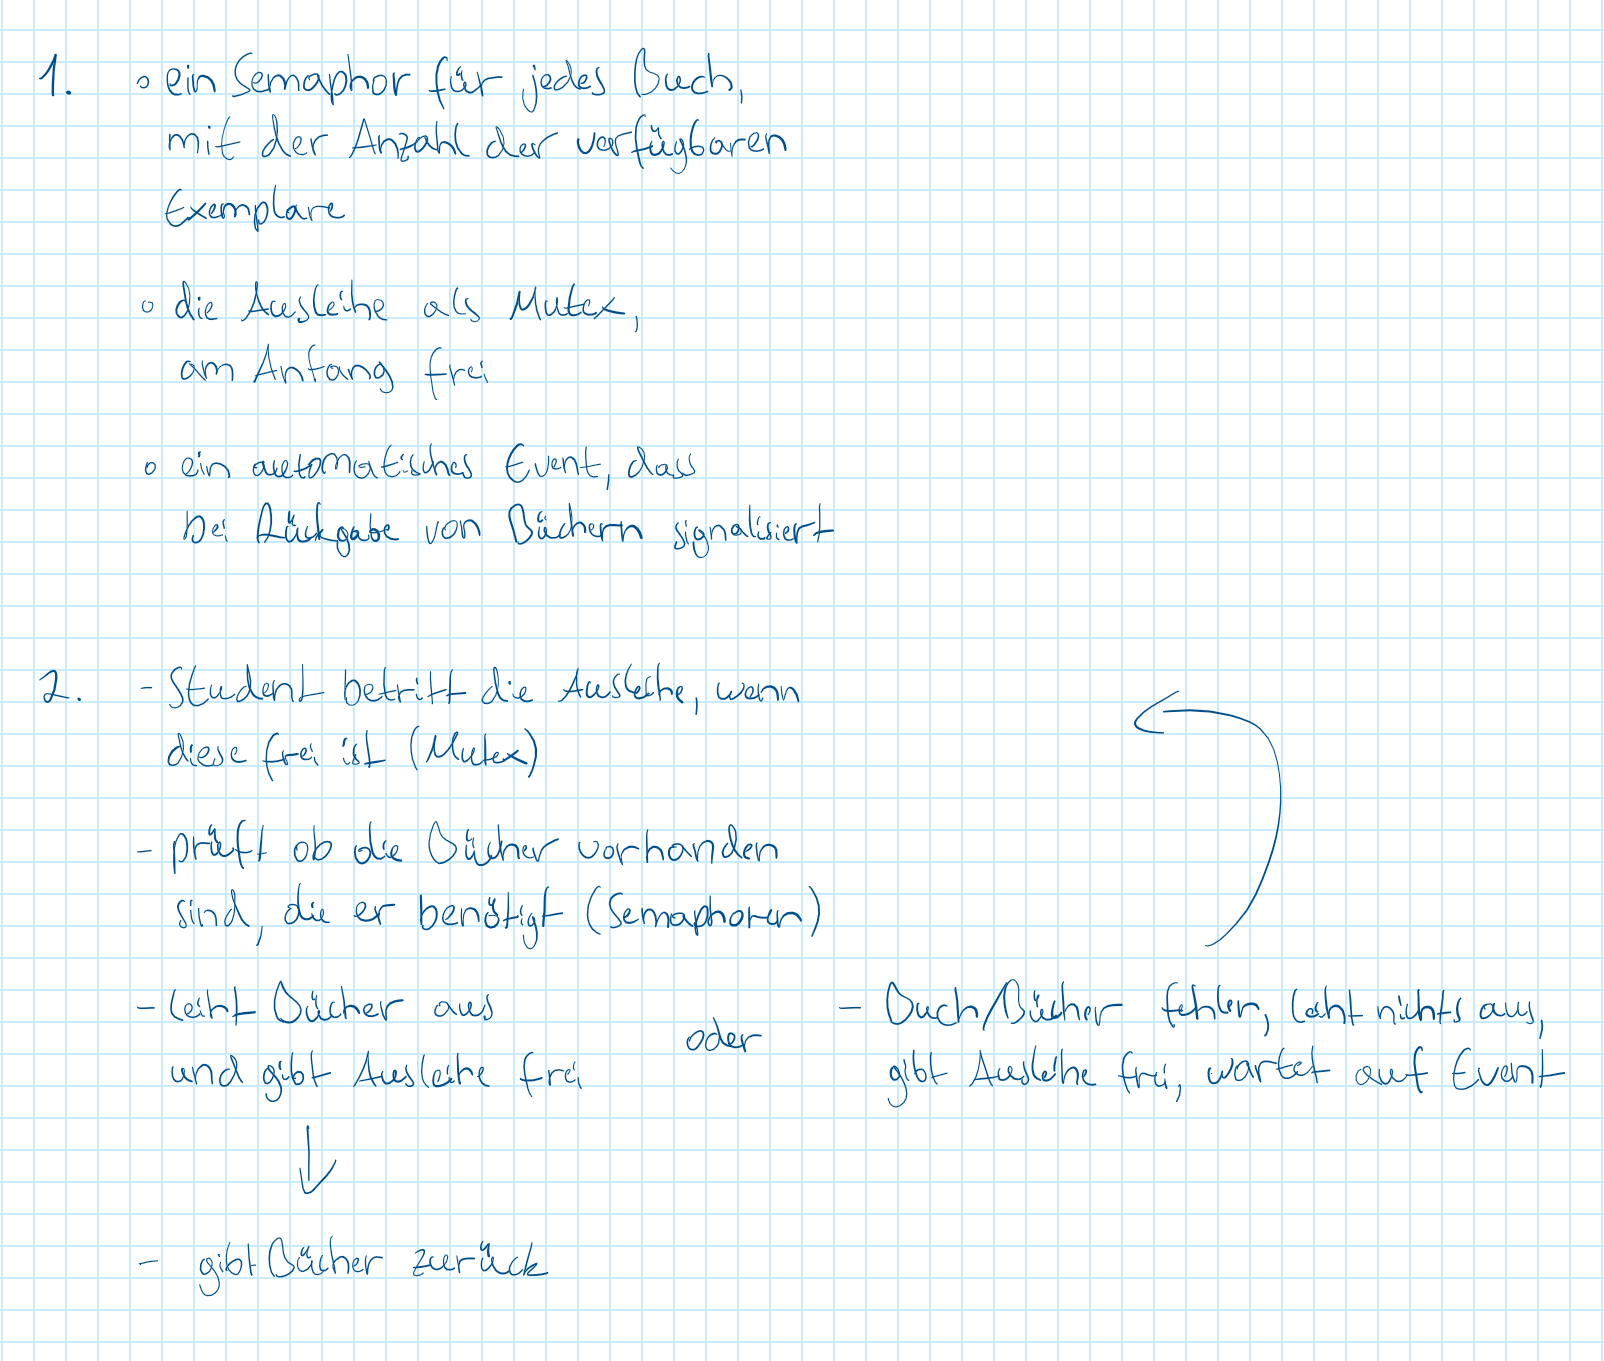 1. ◦ ein Semaphor für jedes Buch,
mit der Anzahl der verfügbaren
Exemplare
◦ die Ausleihe als Mutex,
am Anfang frei
◦ ein automatisches Event, dass
bei Rückgabe von Büchern signalisiert
2. - Student betritt die Ausleihe, wenn
diese frei ist (Mutex)
- prüft ob die Bücher vorhanden
sind, die er benötigt (Semaphoren)
- leiht Bücher aus
und gibt Ausleihe frei
oder
- Buch/Bücher fehlen, leiht nichts aus,
gibt Ausleihe frei, wartet auf Event
- gibt Bücher zurück